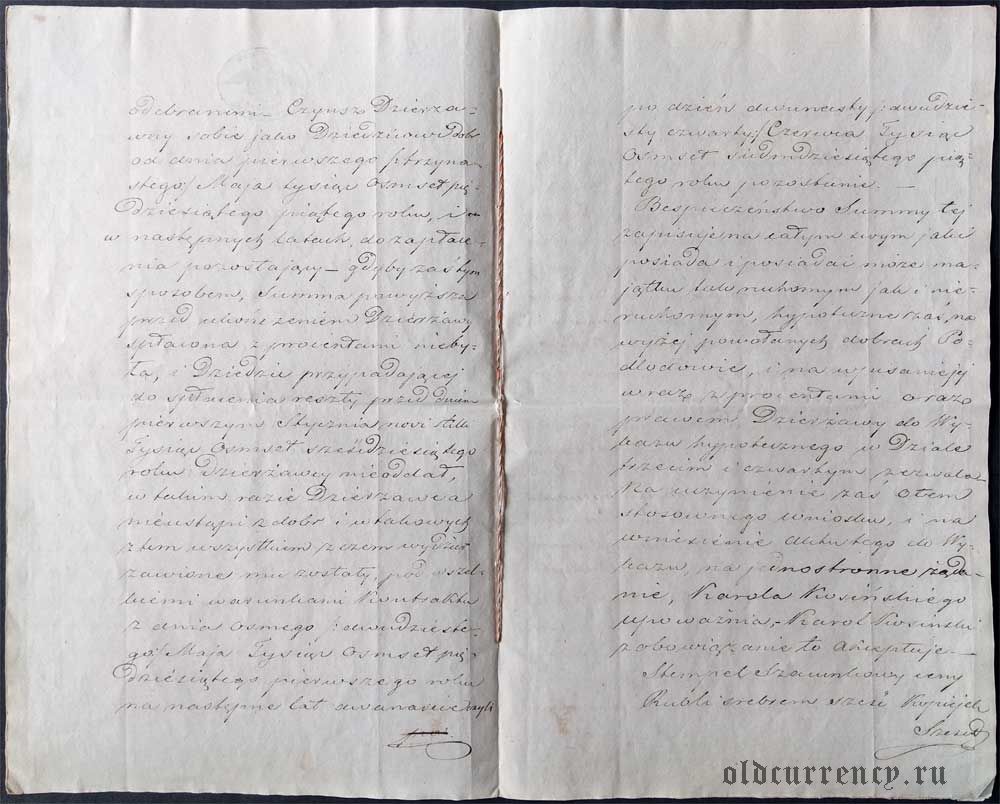 odebranemi – Czynsz Dzierża-
wny sobie jako Dziedzicowi dóbr
od dnia pierwszego /:trzyna-
stego/ Maja tysiąc osmset pię-
dziesiątego piątego roku, i
w następnych latach, do zapłace-
nia pozostający – gdyby zaś tym
sposobem, Summa powyższa
przed ukończeniem Dzierżawy
spłacona z procentami nieby-
ła, i Dziedzic przypadającej
do spłacenia reszty przed dniem
pierwszym Stycznia novi stilli
Tysiąc osmset sześdziesiątego
roku Dzierżawcy nieoddał,
w takim razie Dzierżawca
nieustąpi z dóbr i w takowych
z tem wszystkiem z czem wydzier-
żawione mu zostały, pod wszel-
kiemi warunkami Kontraktu
z dnia osmego /:dwudzieste-
go/ Maja Tysiąc osmset pię-
dziesiątego pierwszego roku
na następne lat dwanaście czyli
po dzień dwunasty /:dwudzie-
sty czwarty/ Czerwca Tysiąc
osmset siedmdziesiątego pią-
tego roku pozostanie. –
Bespieczeństwo Summy tej
zapisuje na całym swym jaki
posiada i posiadać może ma-
jątku tak ruchomym jak i nie-
ruchomym, hypotecznie zaś, na
wyżej powołanych dobrach Po-
dłodowie, i na wpisanie jej
wraz z procentami oraz
prawem Dzierżawy do Wy-
kazu hypotecznego w Dziale
trzecim i czwartym zezwala
Na uczynienie zaś o tem
stosownego wniosku, i na
wniesienie aktu tego do Wy-
kazu, na jednostronne żąda-
nie, Karola Kosińskiego
upoważnia. – Karol Kosiński
zobowiązanie to akceptuje. –
Stempel Szacunkowy ceny
Rubli srebrem sześć Kopiejek
Sześćd
oldcurrency.ru